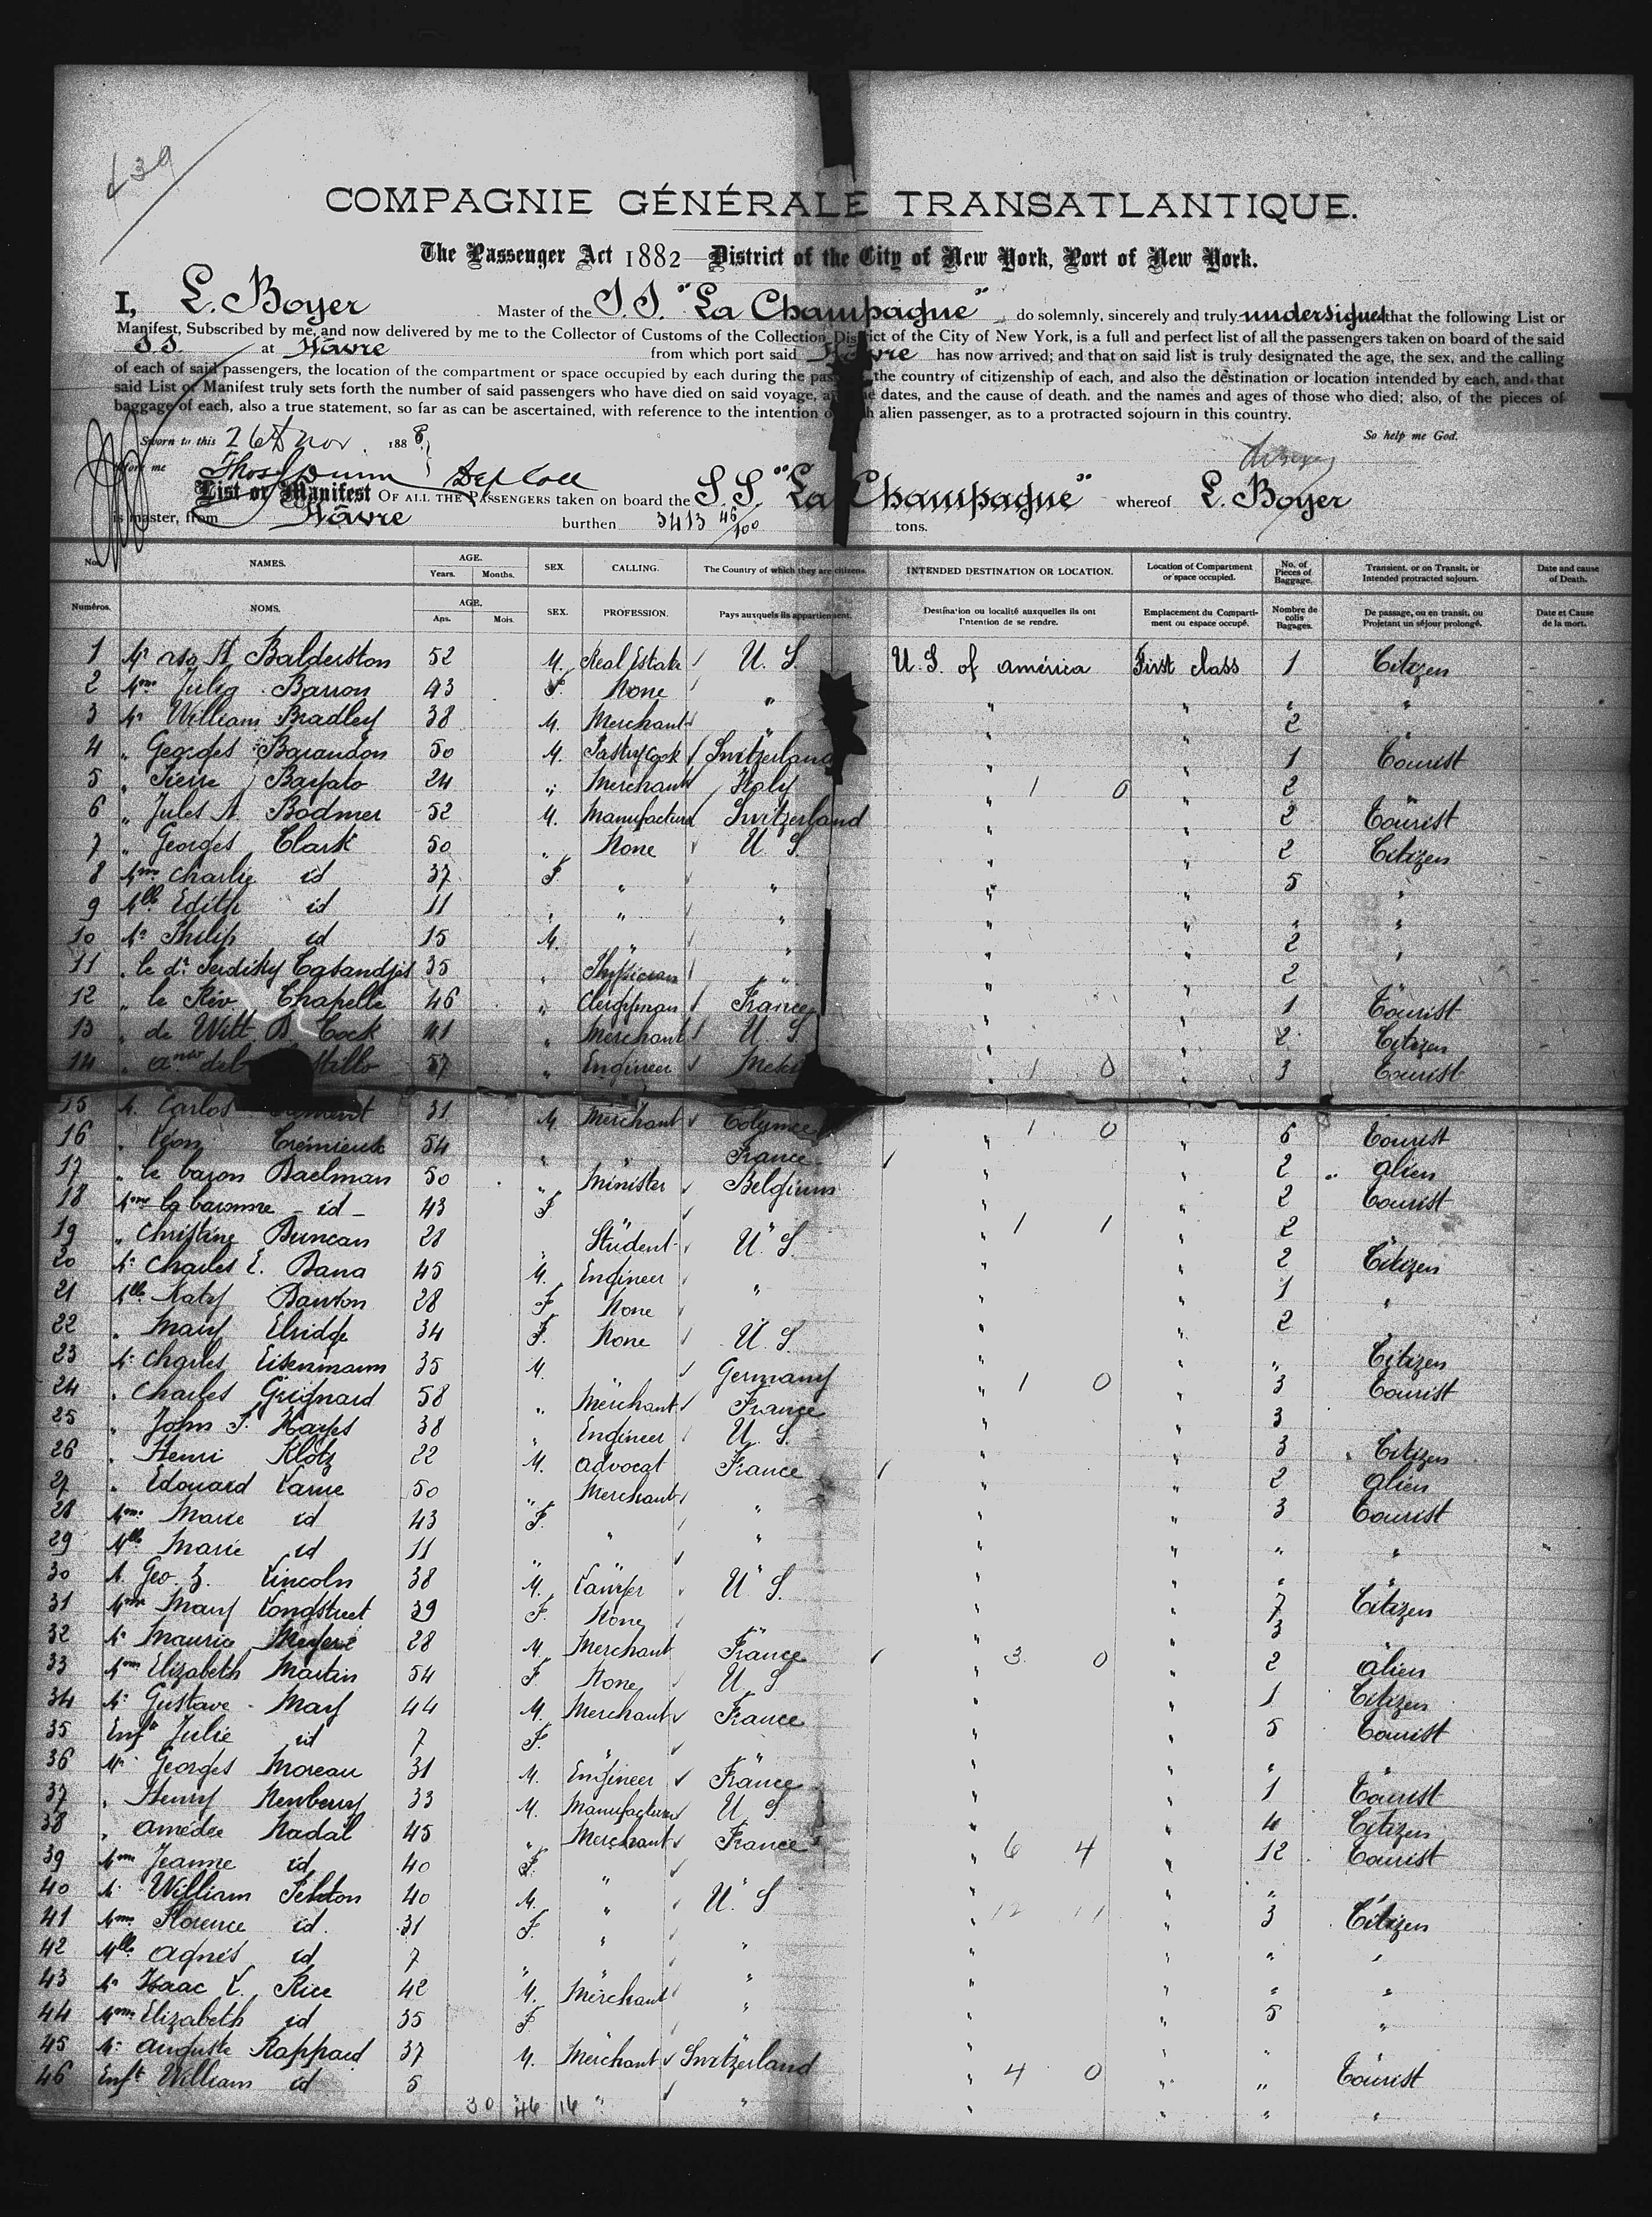 439
COMPAGNIE GÉNÉRALE TRANSATLANTIQUE.
The Passenger Act 1882 District of the City of New York, Port of New York.
I, L. Boyer Master of the S.S. "La Champagne" do solemnly, sincerely and truly undersigned that the following List or
Manifest, Subscribed by me, and now delivered by me to the Collector of Customs of the Collection District of the City of New York, is a full and perfect list of all the passengers taken on board of the said
S.S. at Hâvre from which port said Hâvre has now arrived; and that on said list is truly designated the age, the sex, and the calling
of each of said passengers, the location of the compartment or space occupied by each during the pas the country of citizenship of each, and also the destination or location intended by each, and that
said List or Manifest truly sets forth the number of said passengers who have died on said voyage, a e dates, and the cause of death. and the names and ages of those who died; also, of the pieces of
baggage of each, also a true statement, so far as can be ascertained, with reference to the intention o h alien passenger, as to a protracted sojourn in this country.
Sworn to this 26th Nov. 1888 So help me God.
before me Thos Dunn Dep Coll
List or Manifest OF ALL THE PASSENGERS taken on board the S.S. "La Champagne" whereof L. Boyer
is master, from Hâvre burthen 3413 46/100 tons.
No. NAMES. AGE. Years. Months. SEX. CALLING. The Country of which they are citizens. INTENDED DESTINATION OR LOCATION. Location of Compartment or space occupied. No. of Pieces of Baggage. Transient, or on Transit, or Intended protracted sojourn. Date and cause of Death.
Numéros. NOMS. AGE. Ans. Mois. SEX. PROFESSION. Pays auxquels ils appartiennent. Destination ou localité auxquelles ils ont l'intention de se rendre. Emplacement du Compartiment ou espace occupé. Nombre de colis Bagages. De passage, ou en transit, ou Projetant un séjour prolongé. Date et Cause de la mort.
1 Mr Asa H Balderston 52 M. Real Estate U. S. U. S. of america First class 1 Citizen
2 Mme Julia Barron 43 F. None " " " " "
3 Mr William Bradley 38 M. Merchant " " " 2
4 " Georges Barandon 50 M. Pastry Cook Switzerland " " 1 Tourist
5 " Pierre 24 " Merchant Italy " 1 0 " 2
6 " Jules A. Bodmer 52 M. Manufacturer Switzerland " " 2 Tourist
7 " Georges Clark 50 " None U. S. " " 2 Citizen
8 Mme Charlie id 37 F. " " " " 5 "
9 Mlle Edith id 11 " " " " " " "
10 Mr Philip id 15 M. " " " " 2 "
11 " le dr. 35 " Physician " " " 2
12 " le Rév Chapelle 46 " Clergyman France " " 1 Tourist
13 " de Witt B Cock 41 " Merchant U S. " " 2 Citizen
14 " del 57 " Engineer " 1 0 " 3 Tourist
15 M. Carlos 31 M Merchant " 1 0 " 6 Tourist
16 " Léon Crémieux 54 " " France " " 2 alien
17 " le baron Daelman 50 " Minister Belgium " " 2 Tourist
18 Mme la baronne - id - 43 F " " 1 1 " 2
19 " Christine Duncan 28 " Student U. S. " " 2 Citizen
20 Mr Charles E. Dana 45 M. Engineer " " " 1 "
21 Mlle Katy 28 F None " " 2
22 " Mary Elridge 34 F. None U. S. " " " Citizen
23 Mr Charles Eisenmann 35 M. Germany " 1 0 " 3 Tourist
24 " Charles Grignard 58 " Merchant France " " 3
25 " John F. Hayes 38 " Engineer U. S. " " 3 Citizen
26 " Henri Klotz 22 M. advocat France " " 2 alien
27 " Edouard 50 " Merchant " " " 3 Tourist
28 Mme Marie id 43 F. " " " " " "
29 Mlle Marie id 11 " " " "
30 M. Geo. Z. Lincoln 38 M. Lawyer U S. " " 7 Citizen
31 Mme Mary Longstreet 39 F. None " " 3
32 Mr Maurice 28 M. Merchant France " 3 0 " 2 alien
33 Mme Elizabeth Martin 54 F None U S " " 1 Citizen
34 Mr Gustave May 44 M. Merchant France " " 5 Tourist
35 Enft Julie id 7 F. " " " " "
36 Mr Georges Moreau 31 M. Engineer France " " 1 Tourist
37 " Henry Newberry 33 M. Manufacturer U S " " 4 Citizen
38 " Amédée Nadal 45 " Merchant France " 6 4 " 12 Tourist
39 Mme Jeanne id 40 F. " " " " "
40 Mr William 40 M. " U. S " 12 11 " 3 Citizen
41 Mme Florence id. 31 F. " " " " " "
42 Mlle Agnes id 7 " " " " " " "
43 Mr Isaac L. Rice 42 M. Merchant " " " 5
44 Mme Elizabeth id 35 F " " " "
45 Mr Auguste Rappard 37 M. Merchant Switzerland " 4 0 " " Tourist
46 Enft William id 5 " " " " " " "
30 46 16